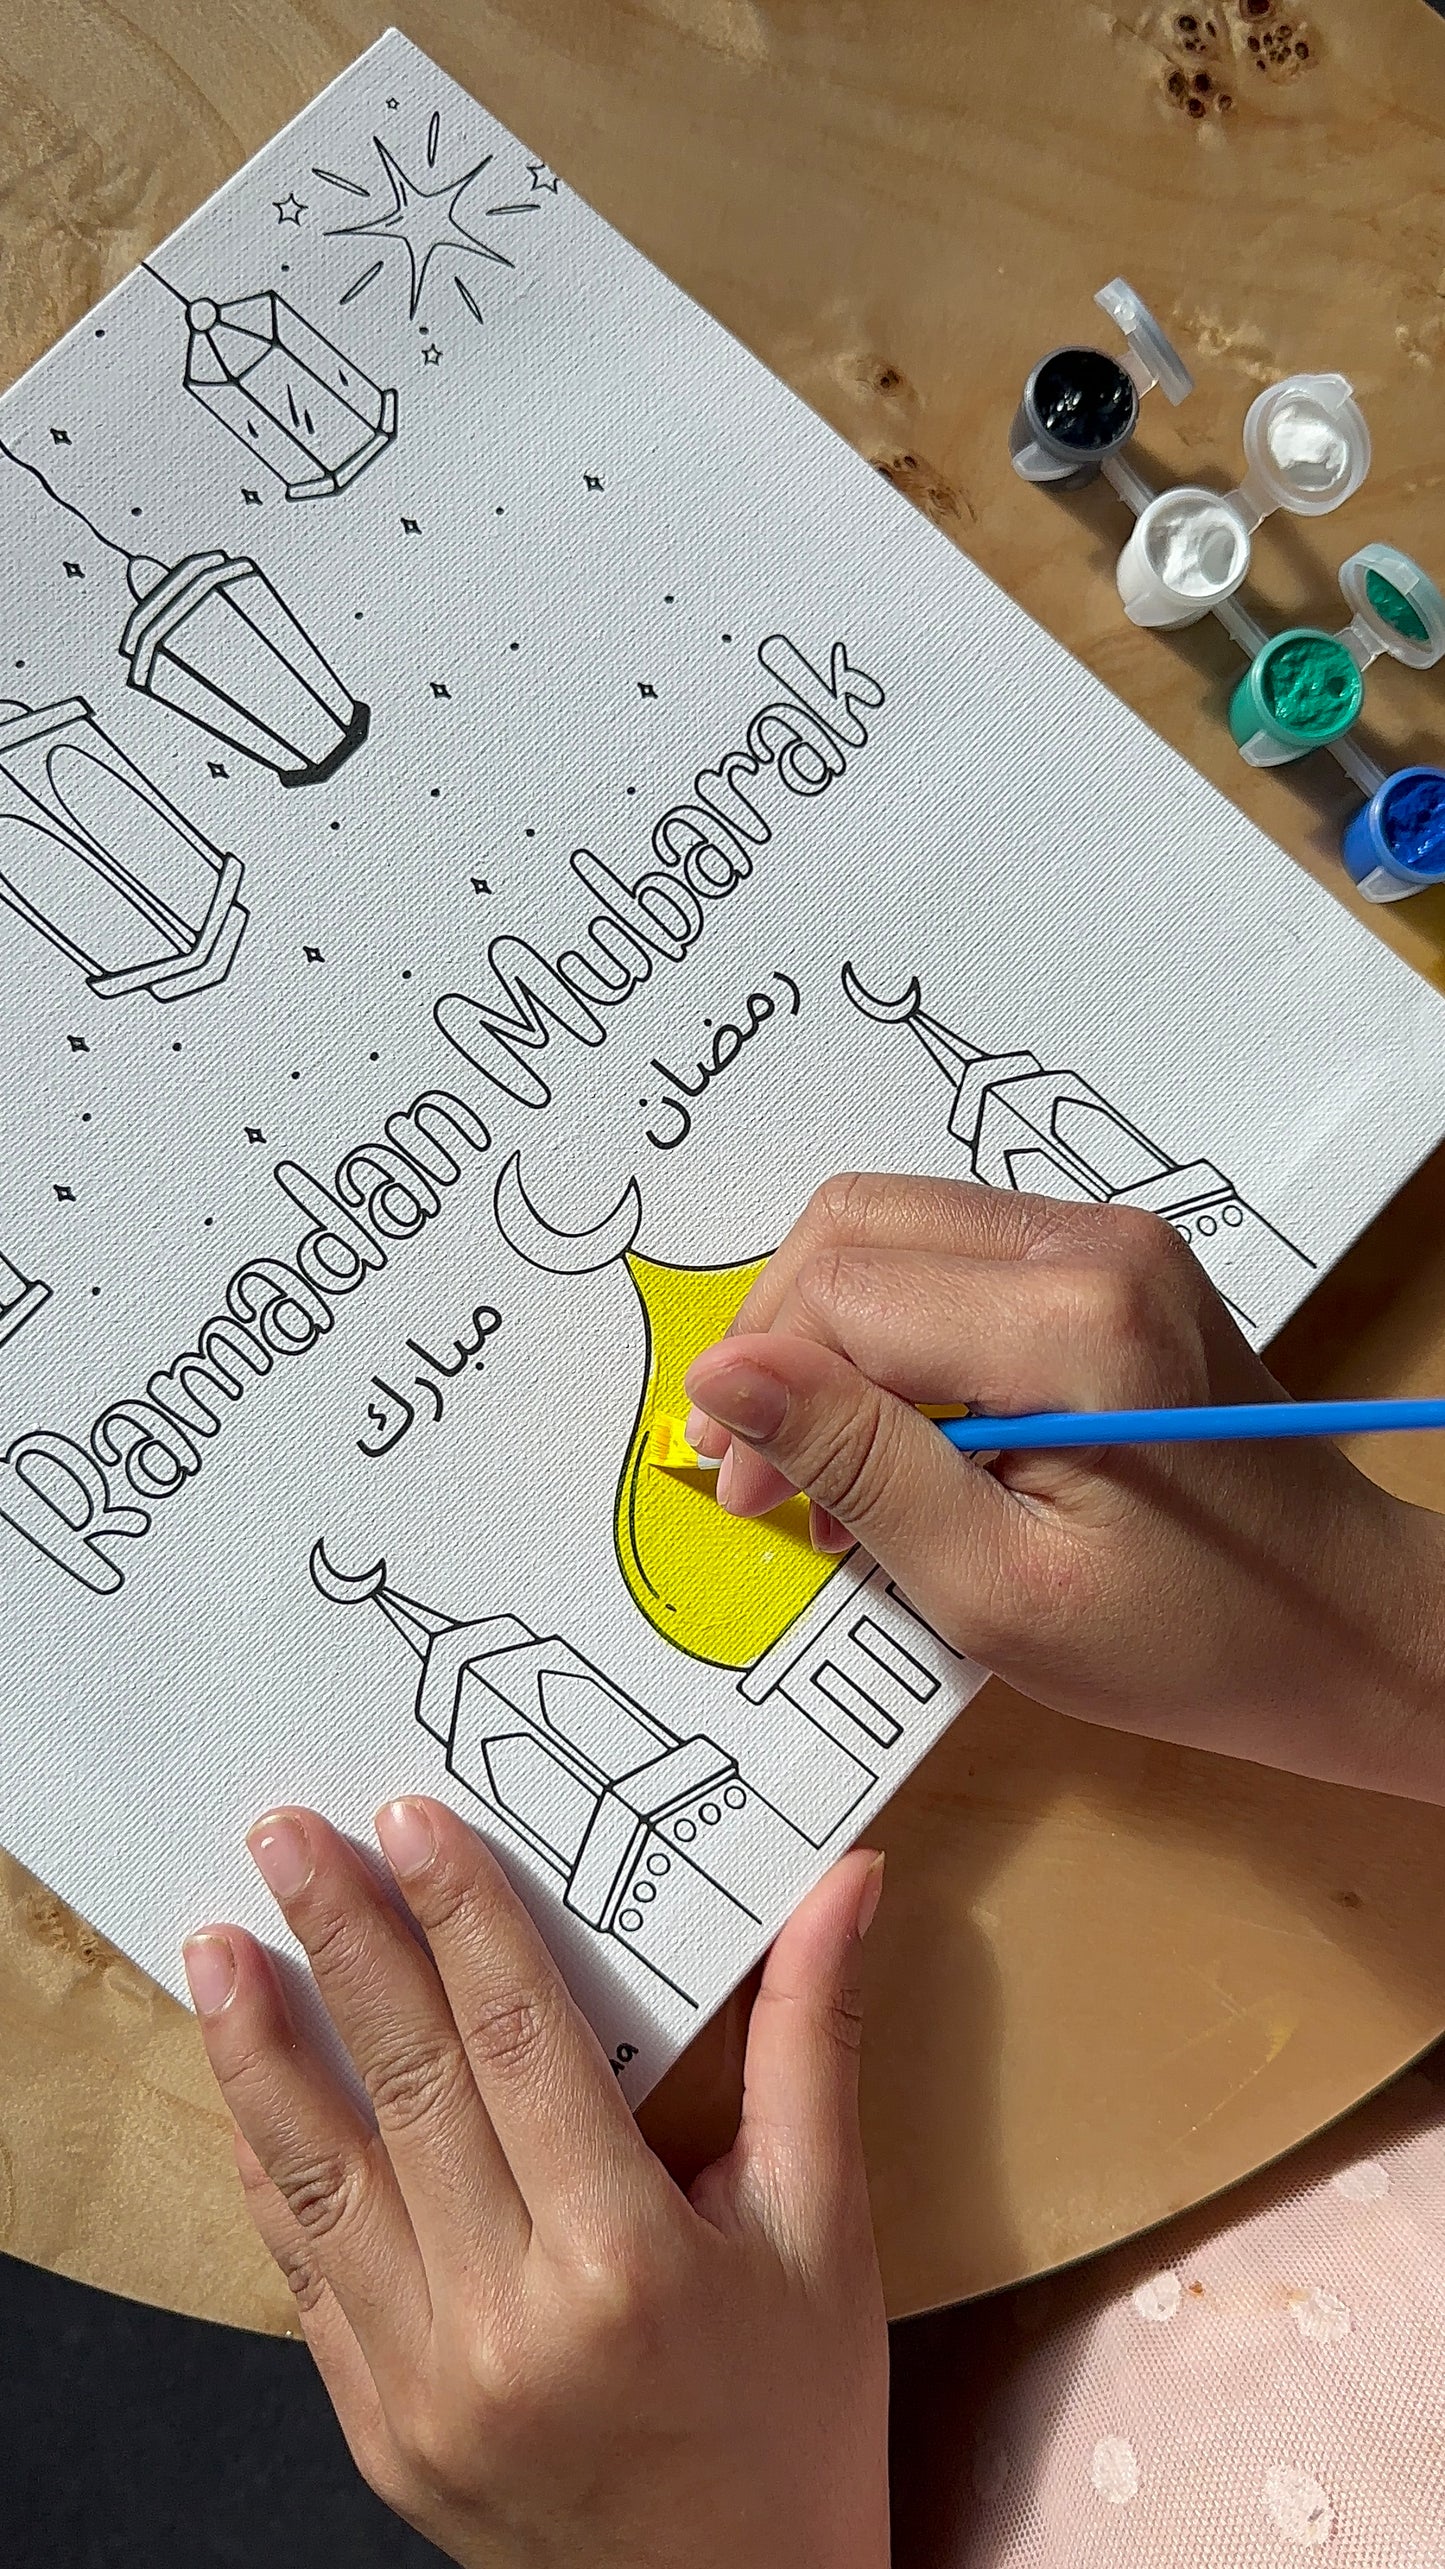 Ramadan Mubarak
رمضان
مبارك